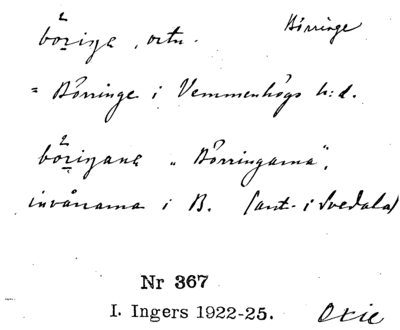 Börringe
böriŋə, ortn.
= Börringe i Vemmenhögs h:d.
böriŋana "Börringarna",
invånarna i B. (ant. i Svedala)
Nr 367
I. Ingers 1922-25. Oxie